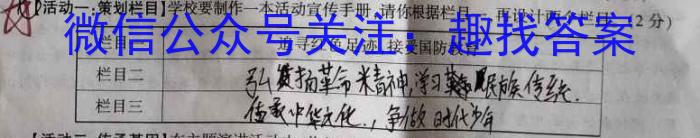 【活动一:策划栏目】学校要制作一本活动宣传手册,请你根据栏目一,再设计两个栏目。(2分)
微信公众号关注：趣找答案
栏目一 追寻红色足迹,接受国防教育
栏目二 弘扬革命精神,学习民族传统.
栏目三 传承中华文化,争做时代少年